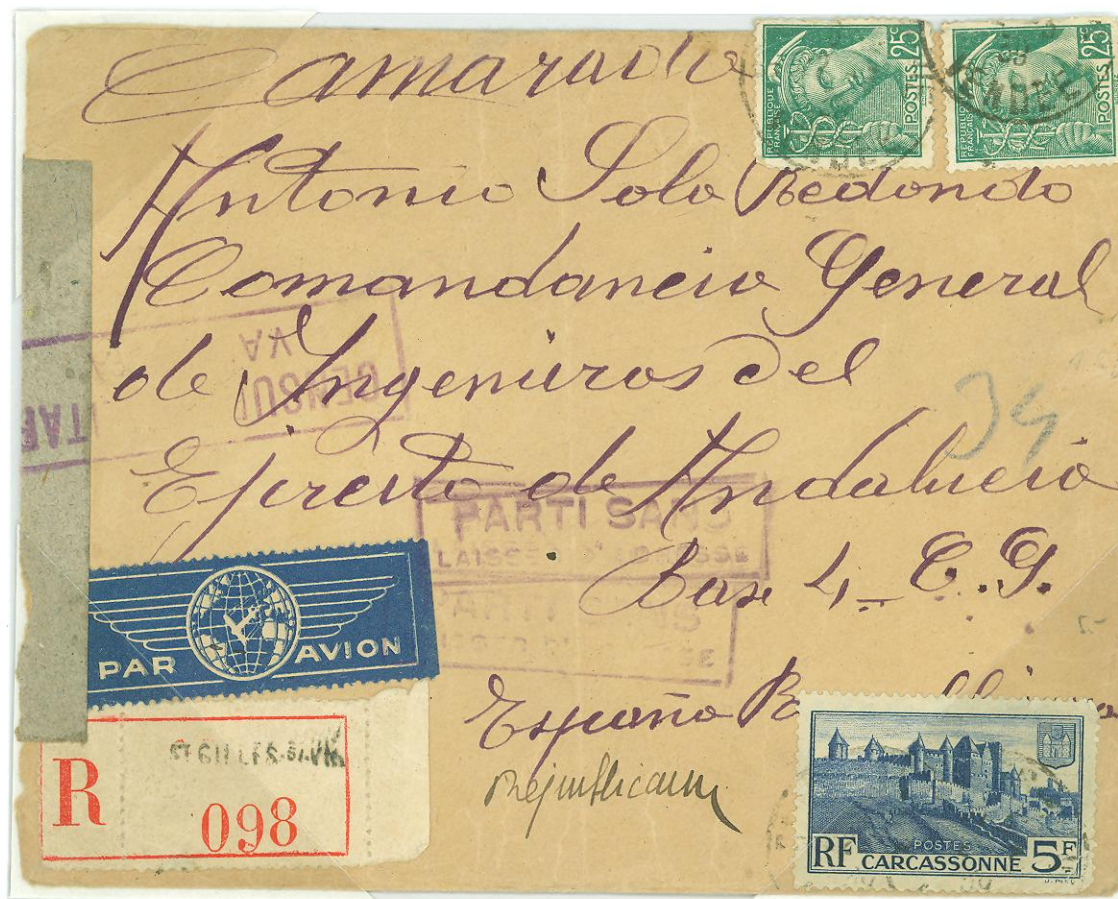 Camarada
Antonio Solo Redondo
Comandancia General
de Ingenieros del
Ejercito de Andalucia
Base 4 C.G.
España
Republicain
REPUBLIQUE FRANÇAISE POSTES 25c
REPUBLIQUE FRANÇAISE POSTES 25c
CENSU
VA
TAR
34
PARTI SANS
LAISSER D' ADRESSE
PARTI
PAR AVION
R
ST GILLES
098
RF POSTES CARCASSONNE 5F